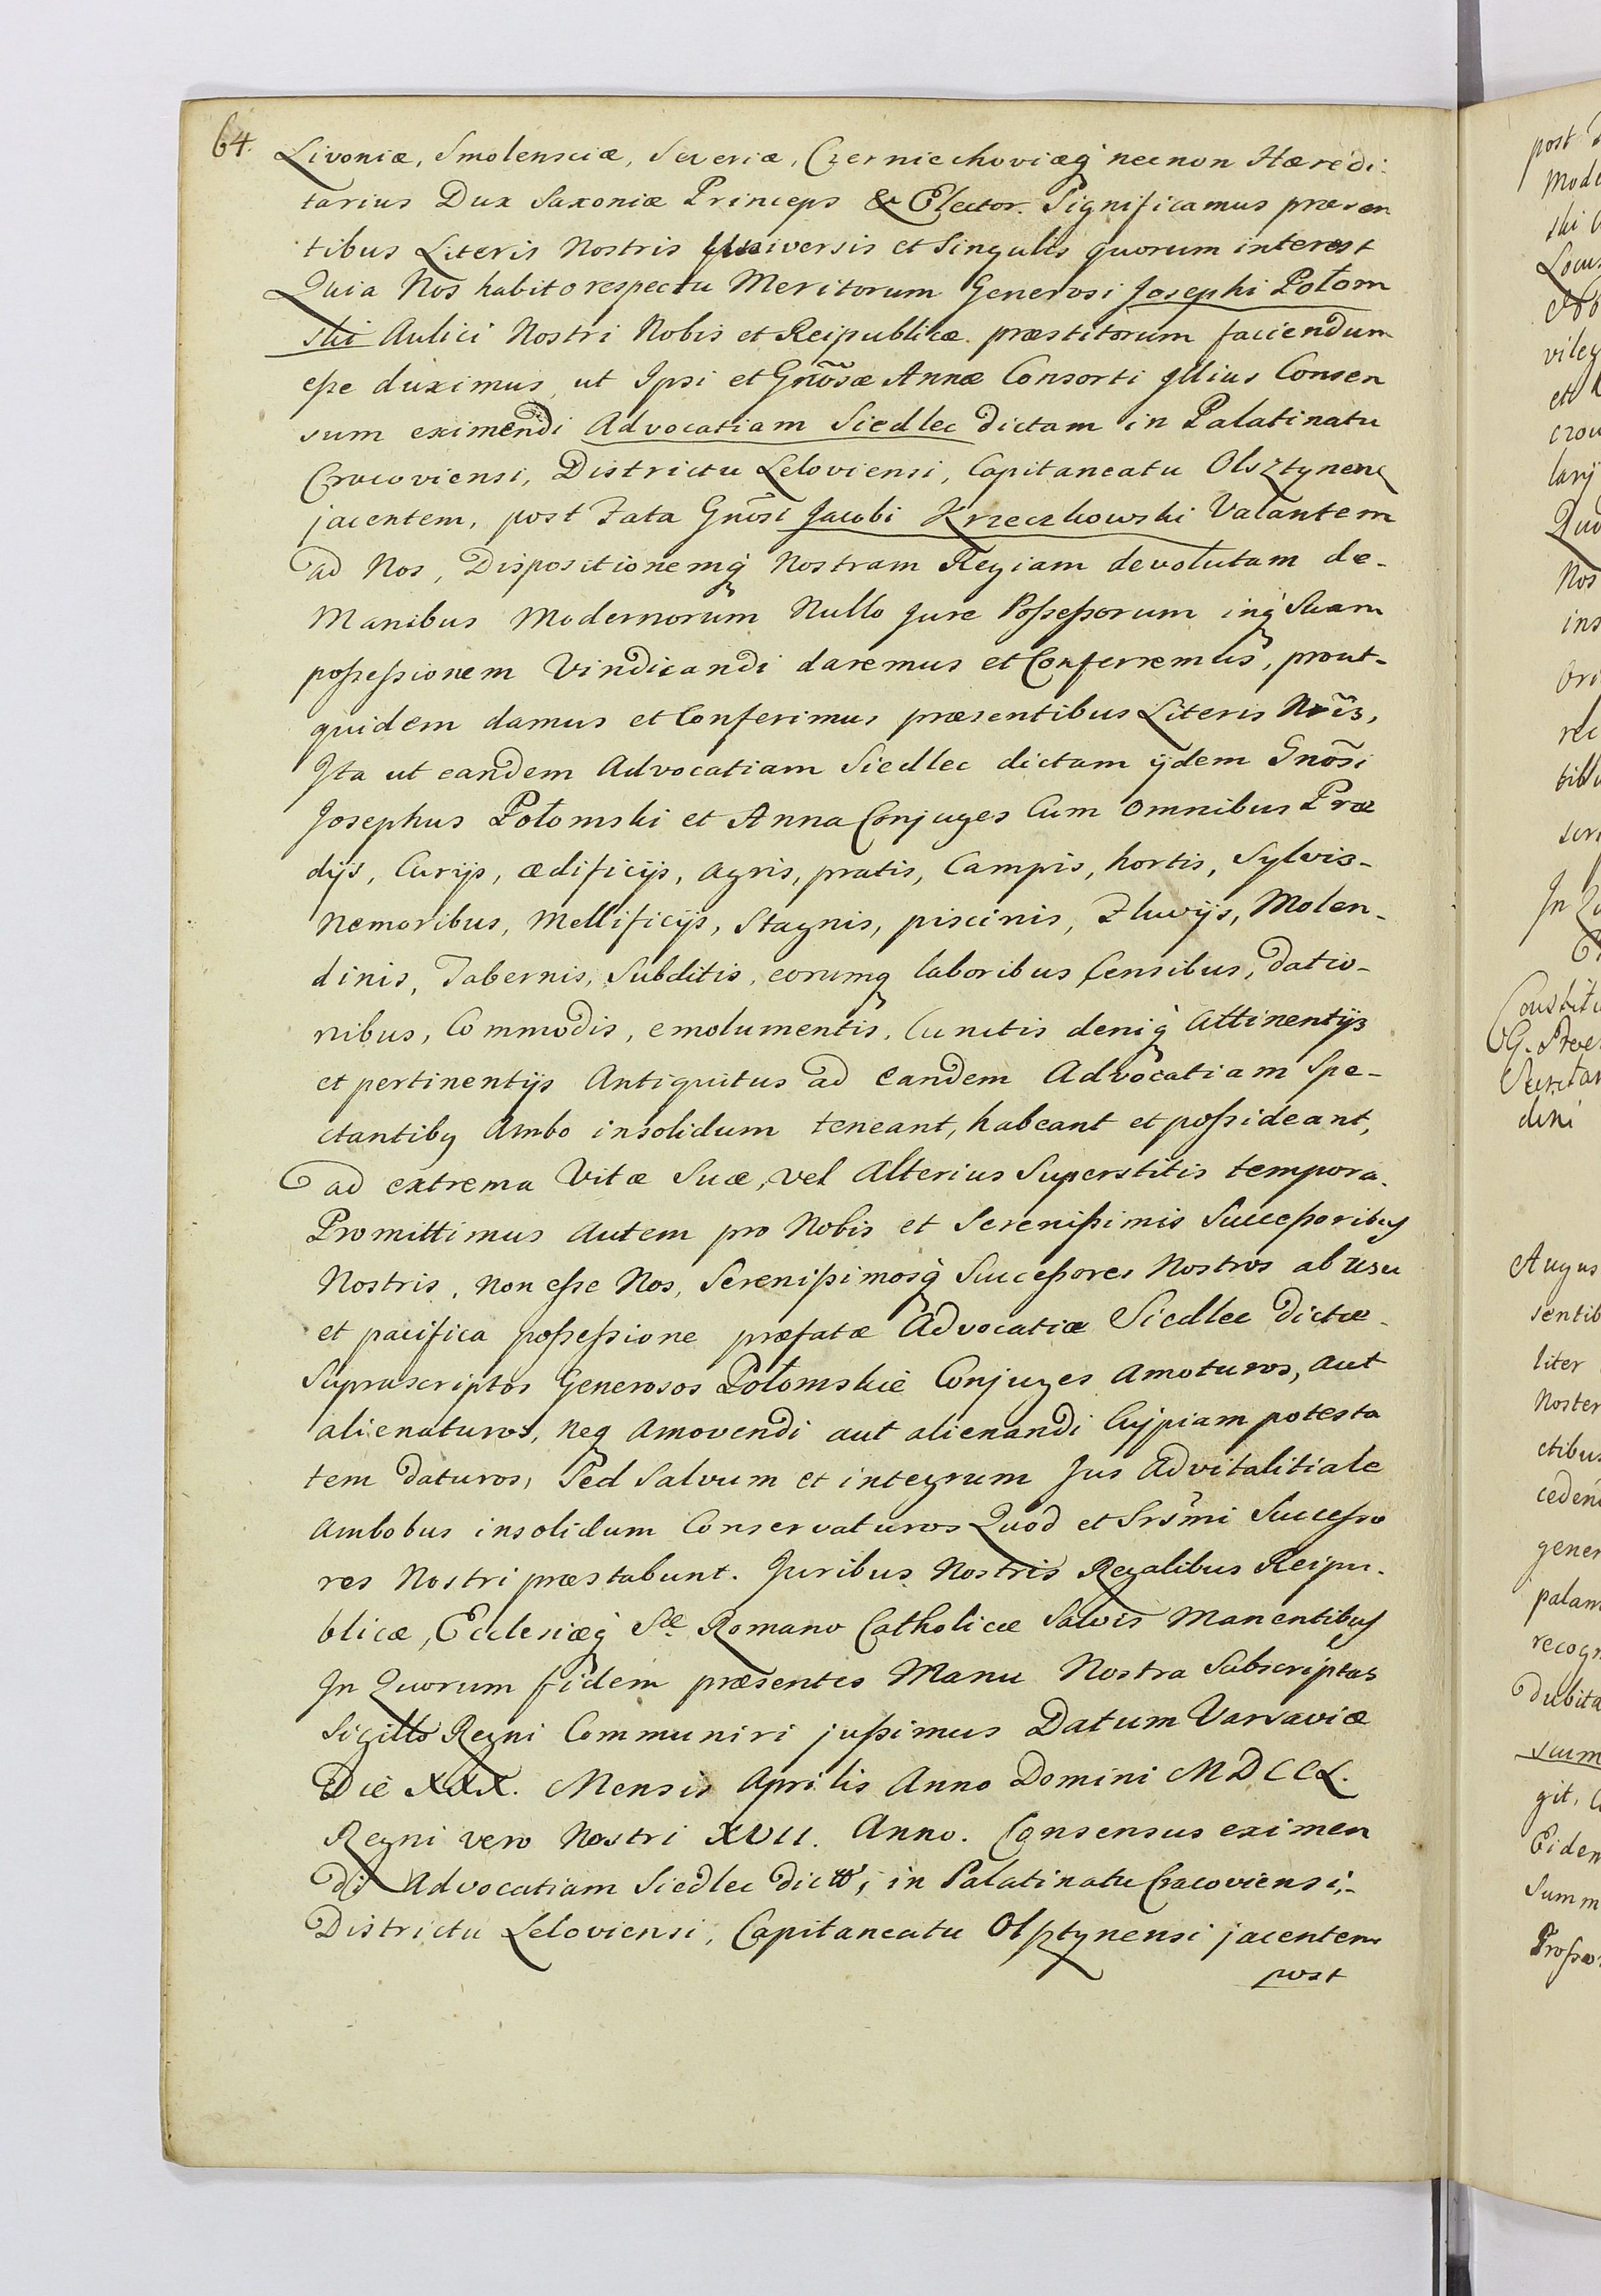 64.
Livoniæ, Smolensciæ, Severiæ, Czerniechoviæq́ necnon Hæredi:
tarius Dux Saxoniæ Princeps & Elector. Significamus præsen
tibus Literis Nostris Universis et Singulis quorum interest
Quia Nos habito respectu Meritorum Generosi Josephi Połom
ski Aulici Nostri Nobis et Reipublicæ præstitorum faciendum
eſse duximus, ut Ipsi et Gnõsæ Annæ Consorti Illius Consen
sum eximendi Advocatiam Siedlec dictam in Palatinatu
Cracoviensi, Districtu Leloviensi, Capitaneatu Olsztynens
jacentem, post Fata Gnõsi Jacobi Krzeczkowski Vacantem
ad Nos, Dispositionemq́ Nostram Regiam devolutam de-
Manibus Modernorum Nullo Jure Poſseſsorum inq́ Suam
poſseſsionem Vindicandi daremus et Conferremus, prout-
quidem damus et Conferimus præsentibus Literis Nr̃is,
Ita ut eandem Advocatiam Siedlec dictam ijdem Gnõsi
Josephus Połomski et Anna Conjuges Cum omnibus Præ
dijs, Curijs, ædificijs, agris, pratis, Campis, hortis, Sylvis-
Nemoribus, Mellificijs, Stagnis, piscinis, Fluvijs, Molen-
dinis, Tabernis, Subditis, eorumq laboribus Censibus, datio-
nibus, Commodis, emolumentis, Cunctis deniq́ Attinentijs
et pertinentijs Antiquitus ad Eandem Advocatiam Spe-
ctantiby Ambo insolidum teneant, habeant et poſsideant,
ad extrema Vitæ Suæ, vel Alterius Superstitis tempora.
Promittimus Autem pro Nobis et Sereniſsimis Succeſsoribus
Nostris, Non eſse Nos, Sereniſsimosq́ Succeſsores Nostros ab usu
et pacifica poſseſsione præfatæ Advocatiæ Siedlec Dictæ-
Suprascriptos Generosos Połomskie Conjuges Amoturos, aut
alienaturos, neq Amovendi aut alienandi Cujpiam potesta
tem Daturos, Sed Salvum et integrum Jus Advitalitiale
Ambobus insolidum Conservaturos Quod et Srs̃mi Succeſso
res Nostri præstabunt. Juribus Nostris Regalibus Reipu-
blicæ, Ecclesiæq́ Sæ Romano Catholicæ Salvis Manentibus
In Quorum fidem præsentes Manu Nostra Subscriptas
Sigillo Regni Communiri juſsimus Datum Varsaviæ
Die XXX. Mensis Aprilis Anno Domini MDCCL.
Regni vero Nostri XVII. Anno. Consensus eximen
di Advocatiam Siedlec dictã, in Palatinatu Cracoviensi,-
Districtu Leloviensi, Capitaneatu Olſztynensi jacentem
post